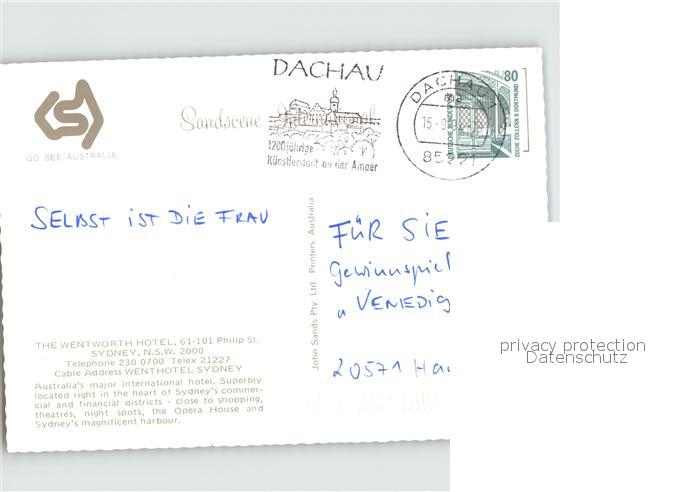 DACHAU
1200jährige
Künstlerstadt an der Amper
DACHAU
15.-9
85221
80
DEUTSCHE BUNDESPOST
ZECHE ZOLLERN II DORTMUND
GO SEE AUSTRALIA
Sandscene International
SELBST IST DIE FRAU
FÜR SIE
Gewinnspiel
"VENEDIG
20571 Ha
John Sands Pty. Ltd., Printers, Australia
THE WENTWORTH HOTEL, 61-101 Philip St.
SYDNEY, N.S.W. 2000
Telephone 230 0700 Telex 21227
Cable Address WENTHOTEL SYDNEY
Australia's major international hotel. Superbly
located right in the heart of Sydney's commer-
cial and financial districts - close to shopping,
theatres, night spots, the Opera House and
Sydney's magnificent harbour.
privacy protection
Datenschutz